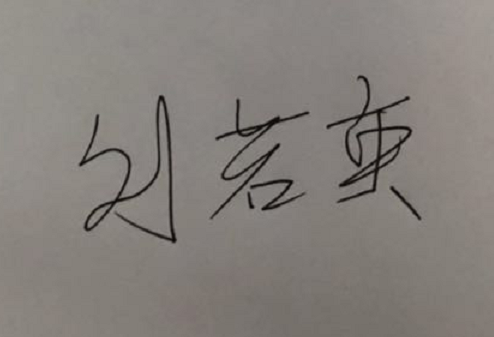 刘若英